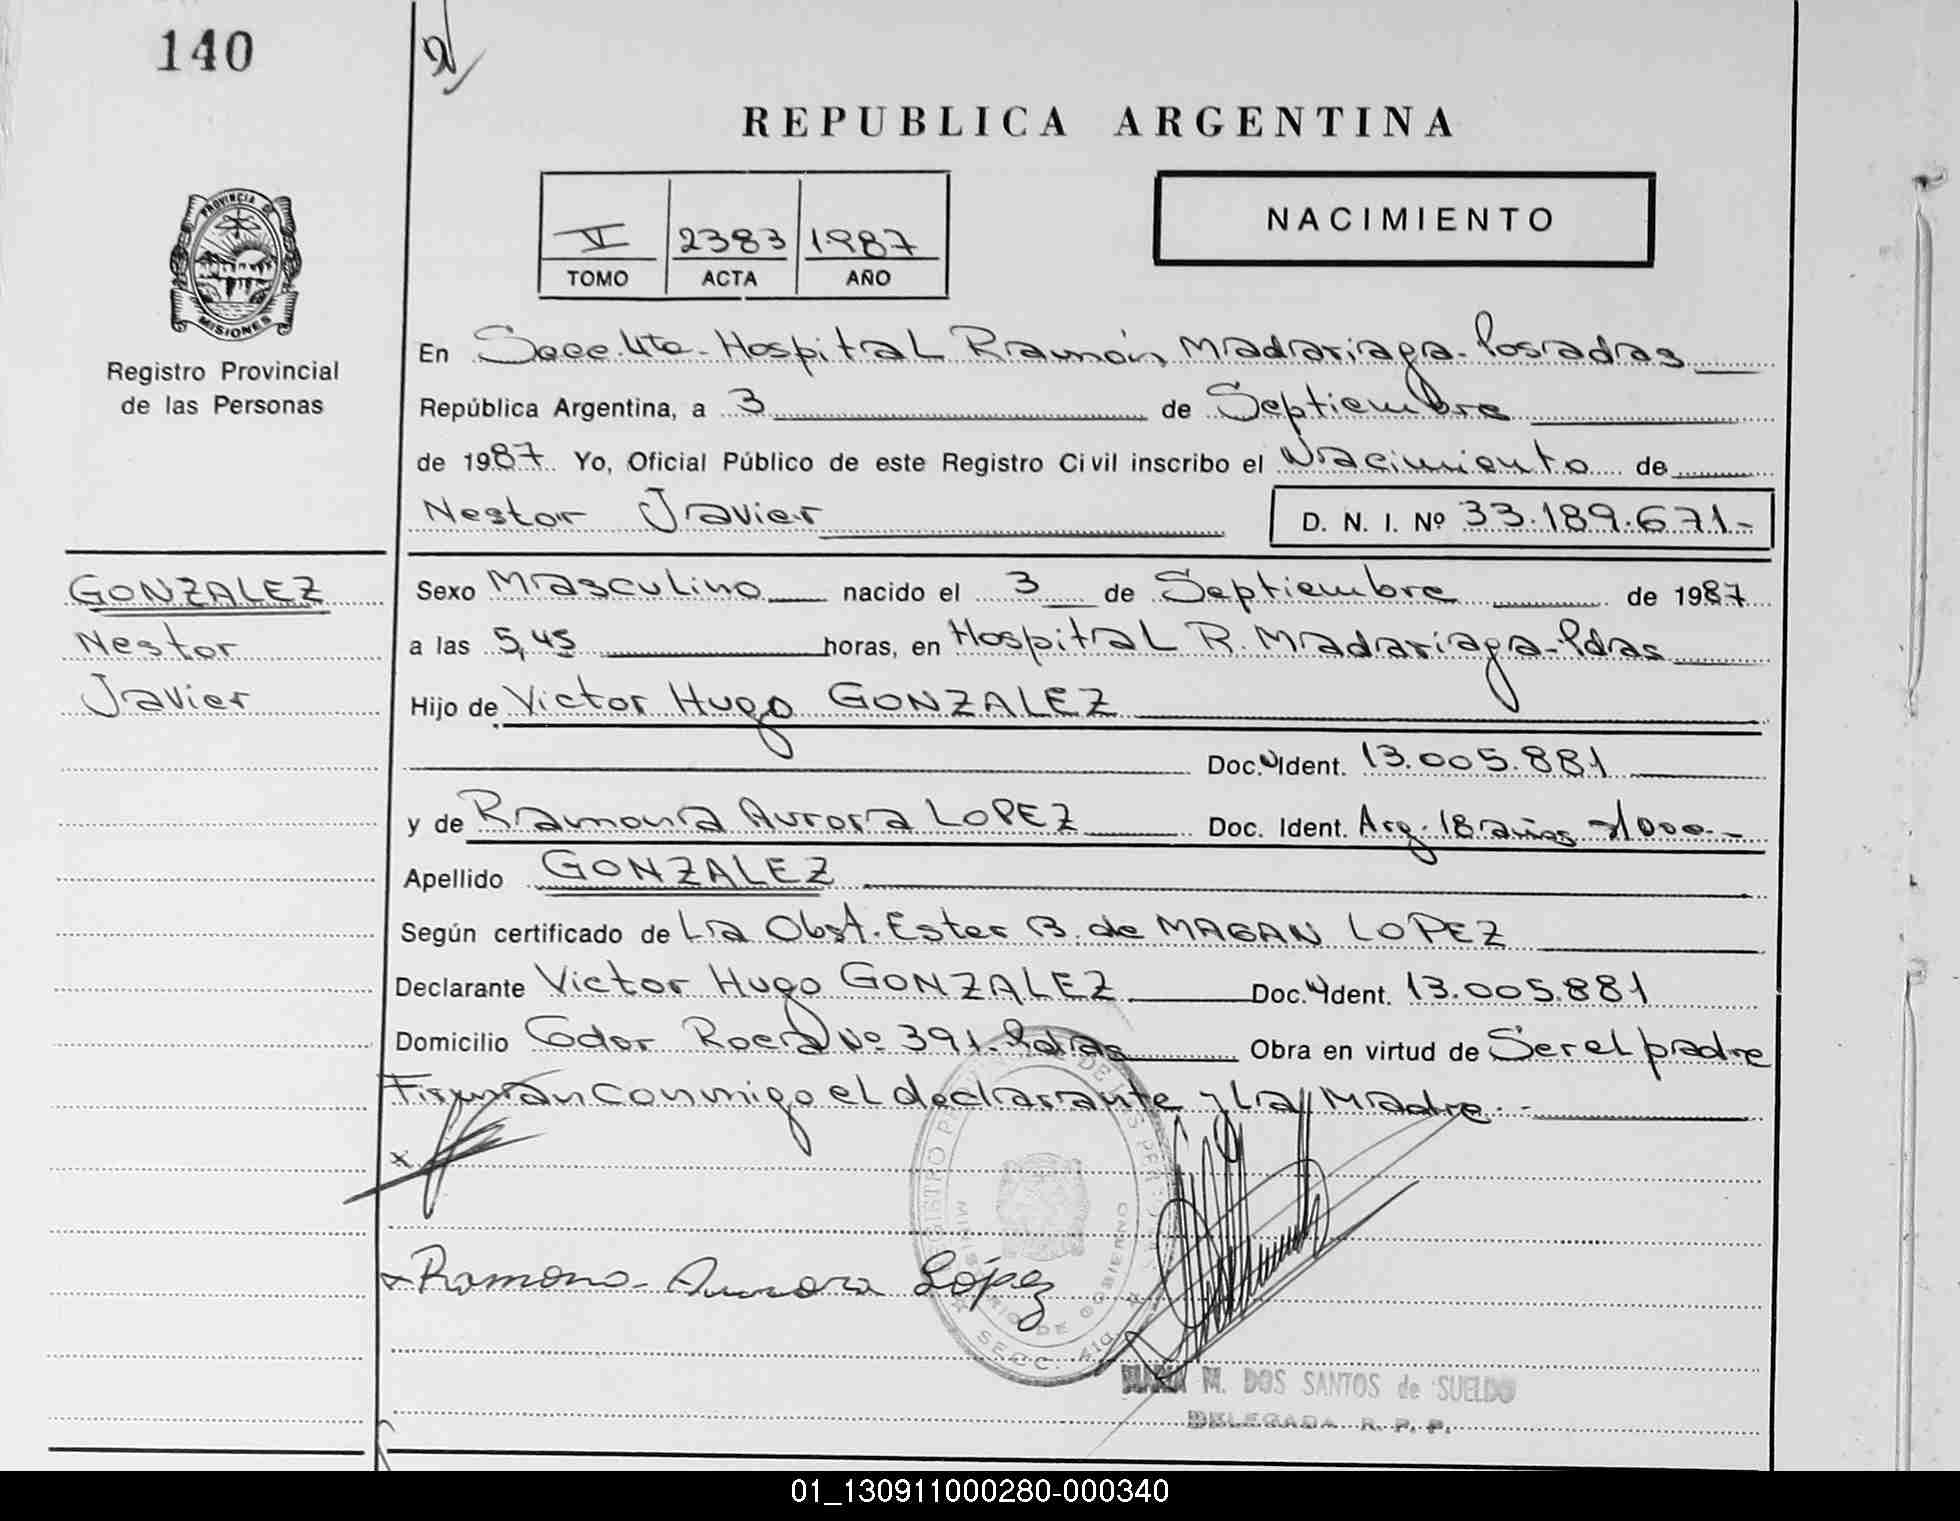 140
REPUBLICA ARGENTINA
VI 2383 1987
TOMO ACTA AÑO
NACIMIENTO
PROVINCIA DE
MISIONES
Registro Provincial
de las Personas
En Secc. 4ta. Hospital Ramón Madariaga. Posadas
República Argentina, a 3 de Septiembre
de 1987. Yo, Oficial Público de este Registro Civil inscribo el Nacimiento de
Nestor Javier D. N. I. Nº 33.189.671.-
GONZALEZ
Nestor
Javier
Sexo Masculino nacido el 3 de Septiembre de 1987
a las 5,45 horas, en Hospital R. Madariaga-Pdas
Hijo de Victor Hugo GONZALEZ
Doc. Ident. 13.005.881
y de Ramona Aurora LOPEZ Doc. Ident. Arg. 18 años
Apellido GONZALEZ
Según certificado de La Obst. Ester B. de MAGAN LOPEZ
Declarante Victor Hugo GONZALEZ Doc. Ident. 13.005.881
Domicilio Cdor Roca Nº 391. Pdas Obra en virtud de Ser el padre
Firman conmigo el declarante y La Madre.-
x
x Ramona Aurora López
REGISTRO PROVINCIAL DE LAS PERSONAS
MINISTERIO DE GOBIERNO
SECC. 4ta.
MARIA M. DOS SANTOS de SUELDO
DELEGADA R. P. P.
01_130911000280-000340